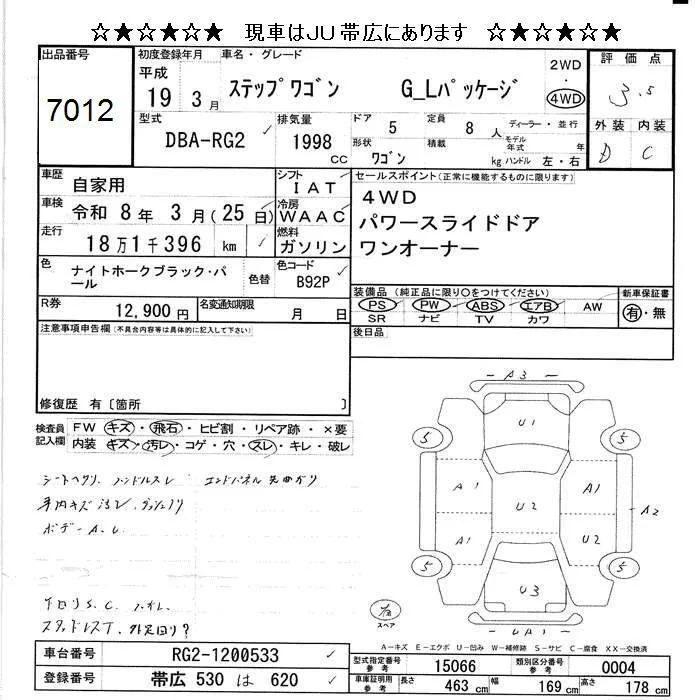 ☆★☆★☆★ 現車はJU帯広にあります ☆★☆★☆★
出品番号
7012
初度登録年月
平成
19 3月
車名・グレード
ステップワゴン G_Lパッケージ
2WD
・
4WD
評価点
3.5
外装 内装
D C
型式
DBA-RG2
排気量
1998
CC
ドア 5
定員 8 人
ディーラー・並行
形状
ワゴン
積載 kg
モデル年式 年
ハンドル 左・右
車歴 自家用
車検 令和 8年 3月(25日)
走行 18万1千396 km
シフト IAT
冷房 WAAC
燃料 ガソリン
色 ナイトホークブラック・パール
色替
色コード B92P
R券 12,900円
名変通知期限 月 日
セールスポイント(正常に機能するものに限ります)
4WD
パワースライドドア
ワンオーナー
装備品(純正品に限り○をつけてください)
PS PW ABS エアB AW
SR ナビ TV カワ
新車保証書
有・無
注意事項申告欄(不具合内容等は具体的に記入して下さい)
後日品
修復歴 有〔箇所 〕
検査員記入欄
FW キズ・飛石・ヒビ割・リペア跡・×要
内装 キズ・汚レ・コゲ・穴・スレ・キレ・破レ
シートヘタリ ハンドルスレ エンドパネル先曲がり
車内キズ汚レ
ボデーA.U
下回りS.C.
スタッドレスT.
A3
U1
5 5
A1 U2 A1
A2
A1 U2
5 5
U3
UA1
スペア
A−キズ E−エクボ U−凹み W−補修跡 S−サビ C−腐食 XX−交換済
車台番号 RG2-1200533
登録番号 帯広 530 は 620
型式指定番号 参考 15066
類別区分番号 参考 0004
車庫証明用 参考 長さ 463 cm 幅 169 cm 高さ 178 cm